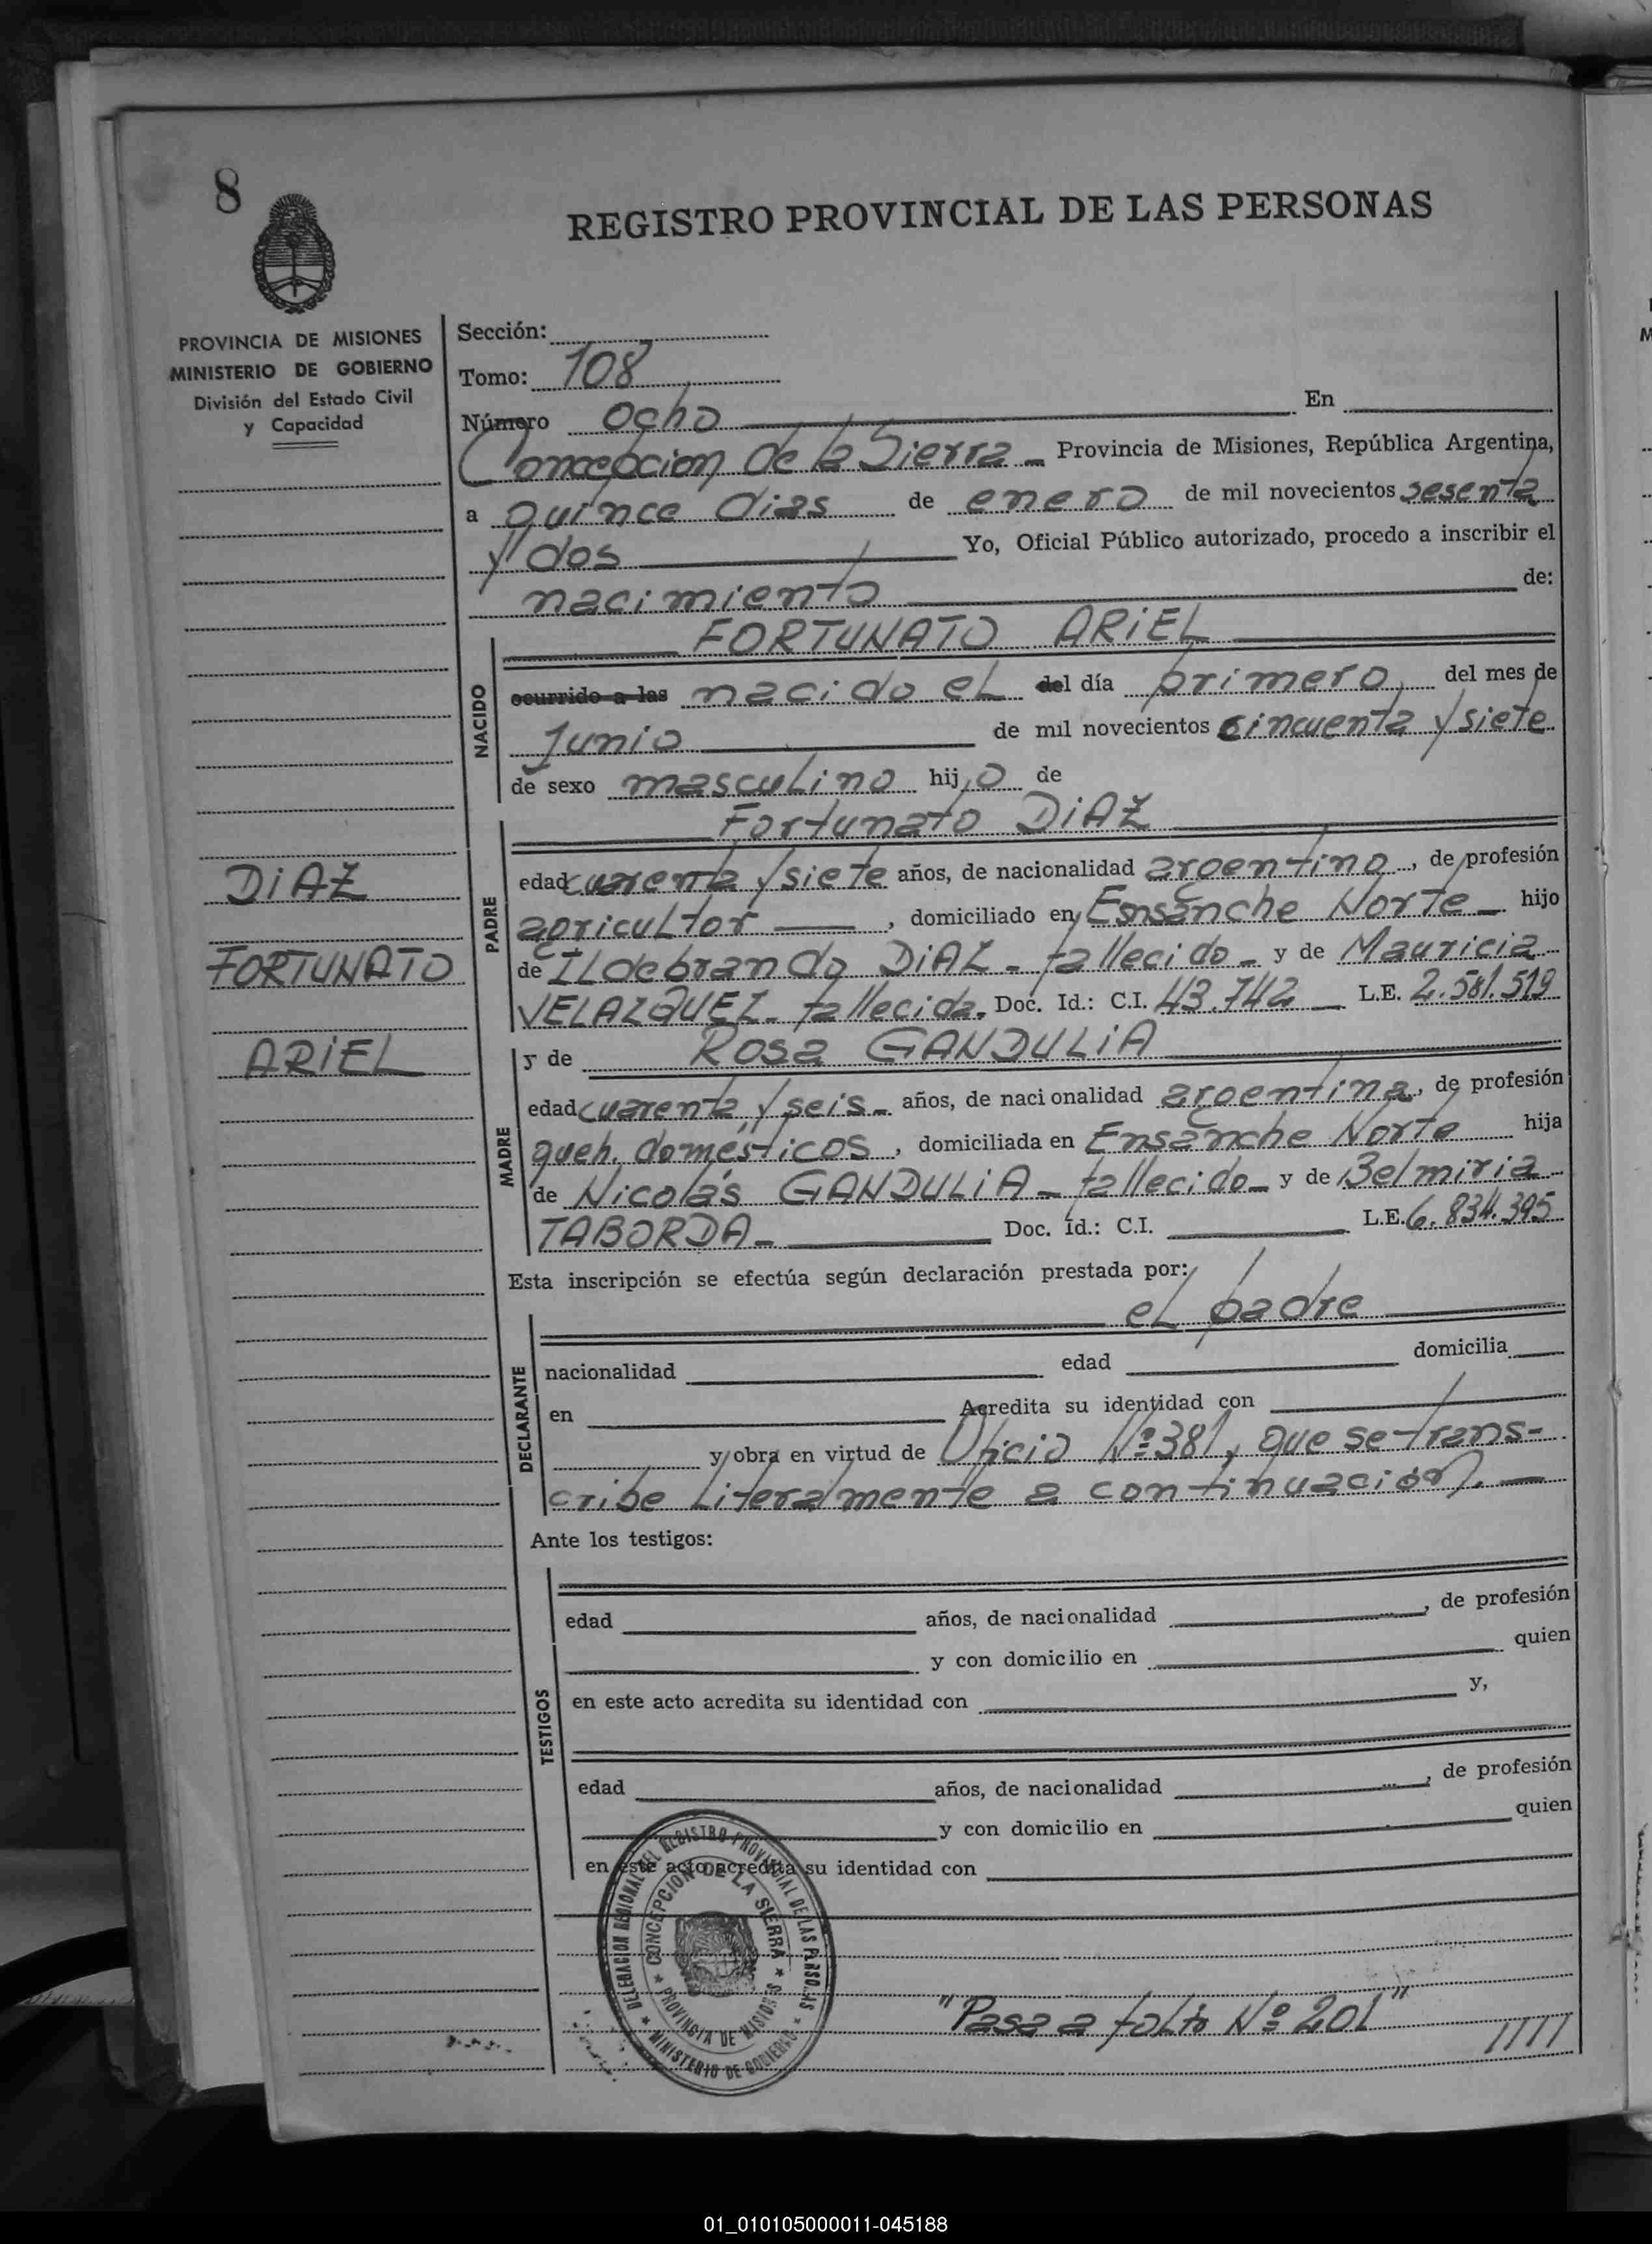 8
REGISTRO PROVINCIAL DE LAS PERSONAS
PROVINCIA DE MISIONES
MINISTERIO DE GOBIERNO
División del Estado Civil
y Capacidad
Sección:
Tomo: 108
Número ocho En
Concepcion de la Sierra - Provincia de Misiones, República Argentina,
a quince dias de enero de mil novecientos sesenta
y dos Yo, Oficial Público autorizado, procedo a inscribir el
nacimiento de:
FORTUNATO ARIEL
NACIDO
ocurrido a las nacido el del día primero, del mes de
Junio de mil novecientos cincuenta y siete
de sexo masculino hijo de
Fortunato DIAZ
PADRE
edad cuarenta y siete años, de nacionalidad argentino, de profesión
agricultor, domiciliado en Ensanche Norte - hijo
de Ildebrando DIAZ - fallecido - y de Mauricia
VELAZQUEZ - fallecida. Doc. Id.: C.I. 43.742 L.E. 2.581.519
DIAZ
FORTUNATO
ARIEL
y de Rosa GANDULIA
MADRE
edad cuarenta y seis - años, de nacionalidad argentina, de profesión
queh. domésticos, domiciliada en Ensanche Norte hija
de Nicolás GANDULIA - fallecido - y de Belmiria
TABORDA - Doc. Id.: C.I. L.E. 6.834.395
Esta inscripción se efectúa según declaración prestada por:
el padre
DECLARANTE
nacionalidad edad domicilia
en Acredita su identidad con
y obra en virtud de Oficio Nº 381, que se trans-
cribe literalmente a continuación.
Ante los testigos:
TESTIGOS
edad años, de nacionalidad , de profesión
y con domicilio en quien
en este acto acredita su identidad con y,
edad años, de nacionalidad , de profesión
y con domicilio en quien
en este acto acredita su identidad con
DELEGACION REGIONAL DEL REGISTRO PROVINCIAL DE LAS PERSONAS
* MINISTERIO DE GOBIERNO *
* CONCEPCION DE LA SIERRA *
PROVINCIA DE MISIONES
"Pasa a folio Nº 201"
/////
01_010105000011-045188